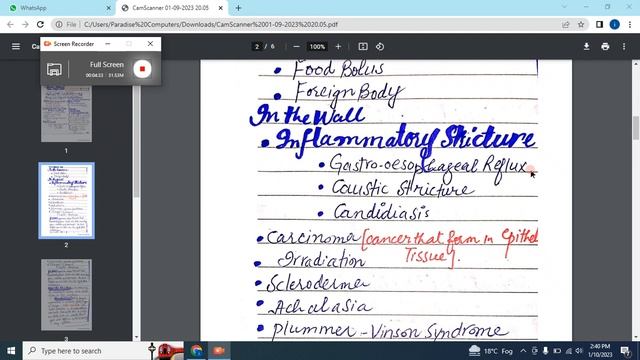 WhatsApp
CamScanner 01-09-2023 20.05
File
C:/Users/Paradise%20Computers/Downloads/CamScanner%2001-09-2023%2020.05.pdf
Screen Recorder
2 / 6
100%
Full Screen
00:04:33
31.53M
1
2
3
Food Bolus
Foreign Body
In the Wall
Inflammatory Stricture
Gastro-oesophageal Reflux
Caustic stricture
Candidiasis
Carcinoma [cancer that form in Epithel
Tissue].
Irradiation
Scleroderma
Achalasia
Plummer-Vinson Syndrome
Type here to search
18°C Fog
2:40 PM
1/10/2023